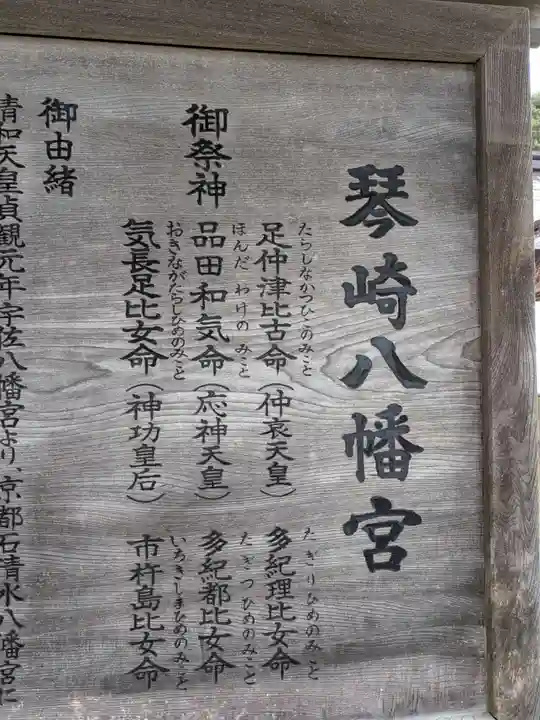 琴崎八幡宮
御祭神
たらしなかつひこのみこと
足仲津比古命（仲哀天皇）
ほんだわけのみこと
品田和気命（応神天皇）
おきながたらしひめのみこと
気長足比女命（神功皇后）
たぎりひめのみこと
多紀理比女命
たぎつひめのみこと
多紀都比女命
いちきしまひめのみこと
市杵島比女命
御由緒
清和天皇貞観元年宇佐八幡宮より、京都石清水八幡宮に